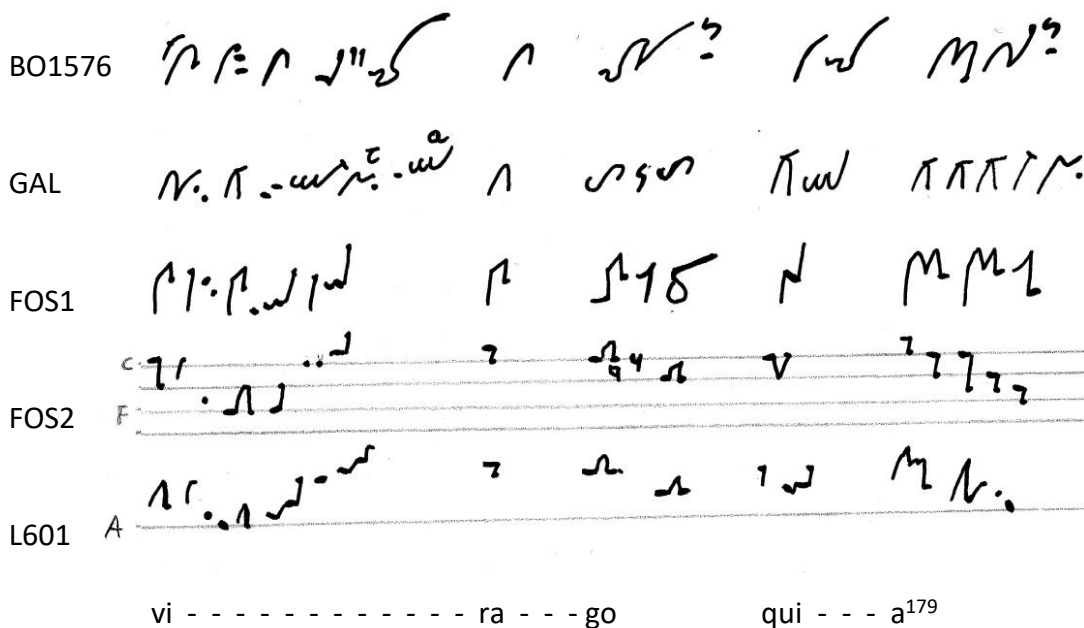 BO1576
GAL τ a
FOS1
C
FOS2 F
L601 A
vi - - - - - - - - - - - - ra - - - go qui - - - a¹⁷⁹